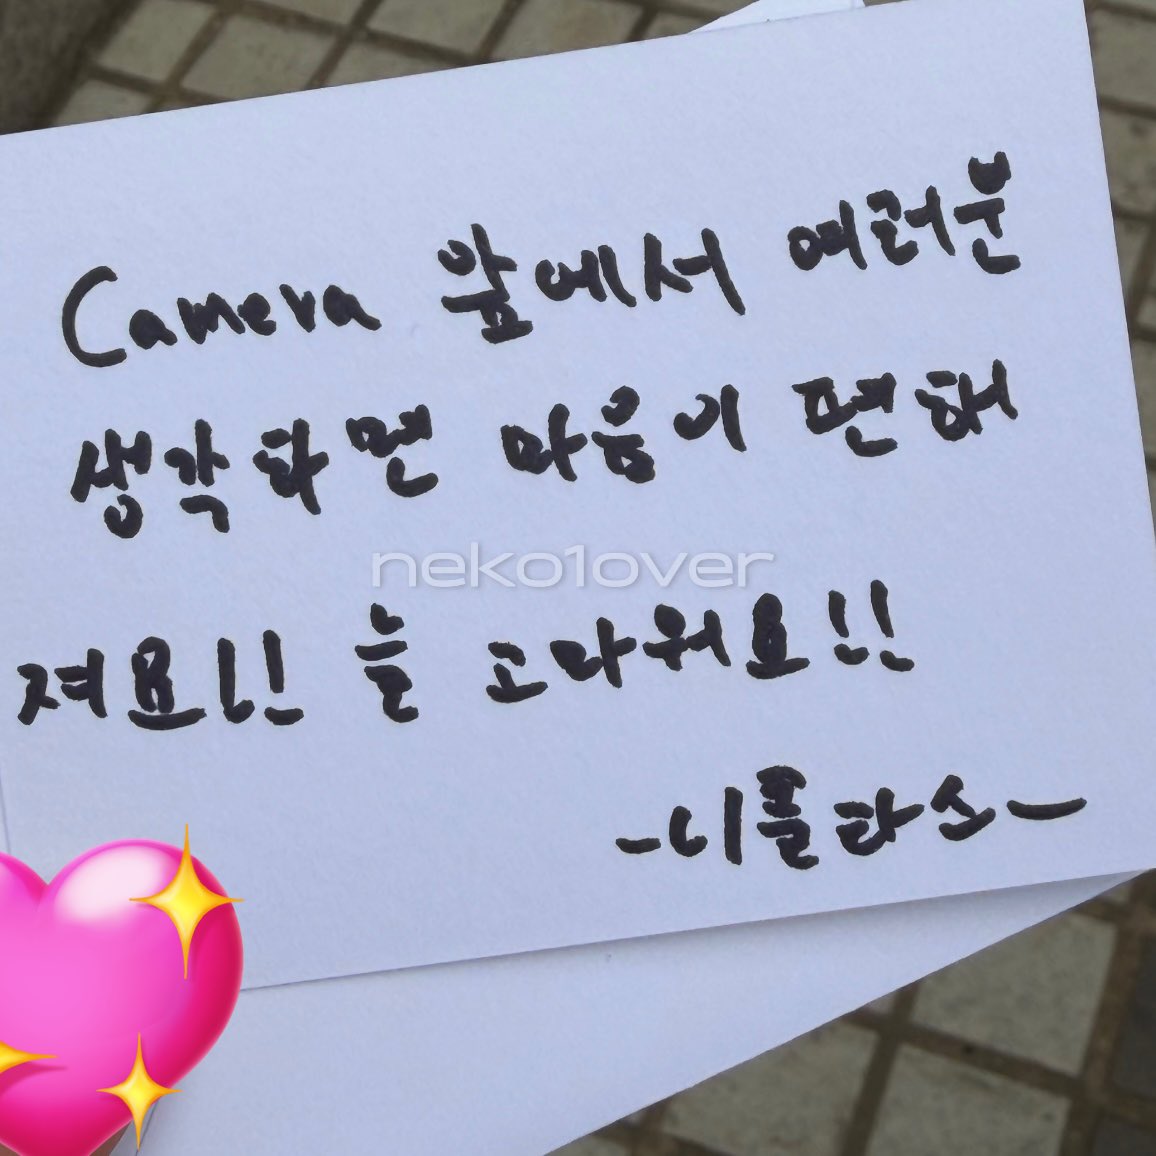 Camera 앞에서 여러분
생각하면 마음이 편해
neko1over
져요!! 늘 고마워요!!
-니콜라스-